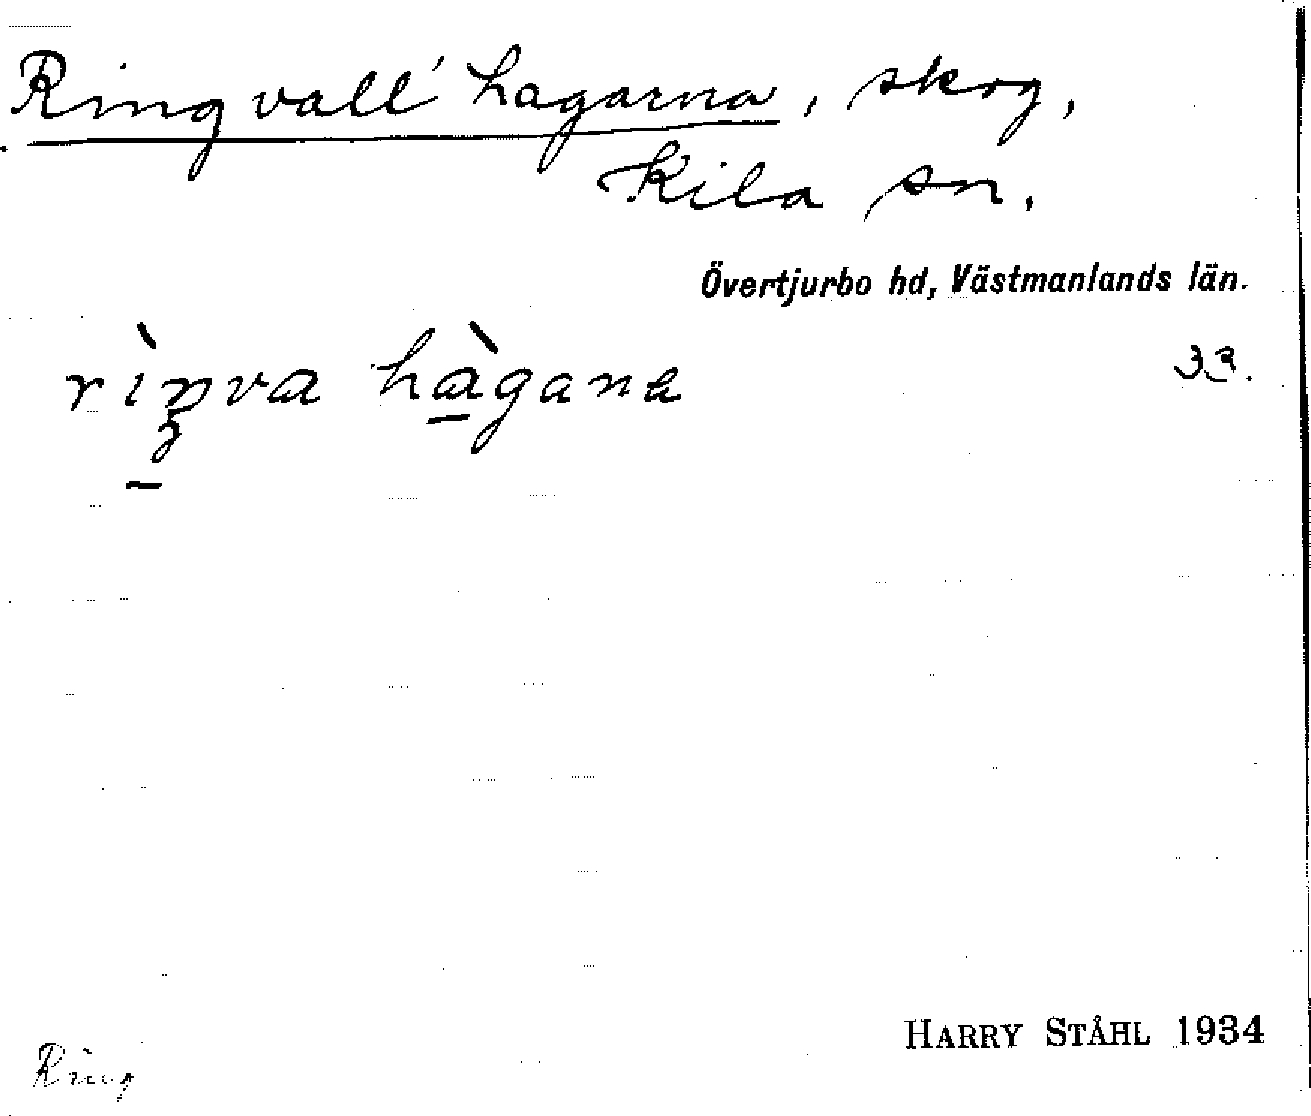 Ringvall'hagarna, skog,
Kila sn.
Övertjurbo hd, Västmanlands län.
rìŋva hàgana
33.
HARRY STÅHL 1934
Ring